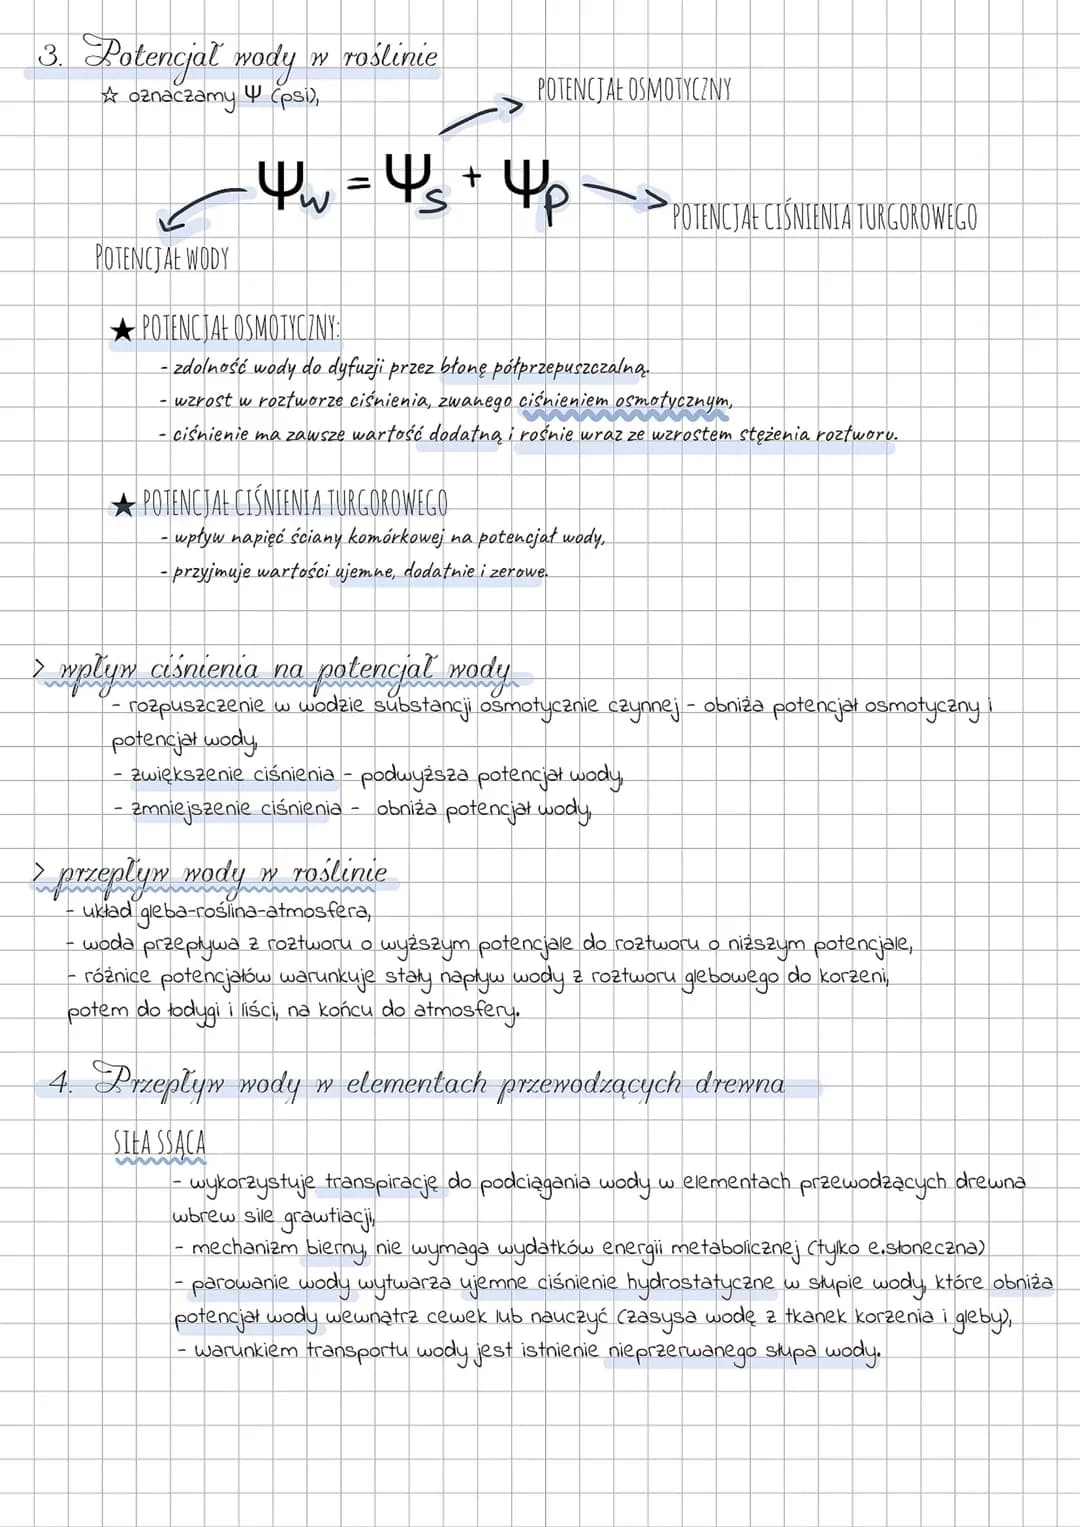 3. Potencjał wody w roślinie
☆ oznaczamy Ψ (psi),
POTENCJAŁ OSMOTYCZNY
Ψw = Ψs + Ψp
POTENCJAŁ CIŚNIENIA TURGOROWEGO
POTENCJAŁ WODY
★ POTENCJAŁ OSMOTYCZNY:
- zdolność wody do dyfuzji przez błonę półprzepuszczalną.
- wzrost w roztworze ciśnienia, zwanego ciśnieniem osmotycznym,
- ciśnienie ma zawsze wartość dodatną i rośnie wraz ze wzrostem stężenia roztworu.
★ POTENCJAŁ CIŚNIENIA TURGOROWEGO
- wpływ napięć ściany komórkowej na potencjał wody,
- przyjmuje wartości ujemne, dodatnie i zerowe.
> wpływ ciśnienia na potencjał wody
- rozpuszczenie w wodzie substancji osmotycznie czynnej - obniża potencjał osmotyczny i
potencjał wody,
- zwiększenie ciśnienia - podwyższa potencjał wody,
- zmniejszenie ciśnienia - obniża potencjał wody,
> przepływ wody w roślinie
- układ gleba-roślina-atmosfera,
- woda przepływa z roztworu o wyższym potencjale do roztworu o niższym potencjale,
- różnice potencjałów warunkuje stały napływ wody z roztworu glebowego do korzeni,
potem do łodygi i liści, na końcu do atmosfery.
4. Przepływ wody w elementach przewodzących drewna
SIŁA SSĄCA
- wykorzystuje transpirację do podciągania wody w elementach przewodzących drewna
wbrew sile grawtiacji,
- mechanizm bierny, nie wymaga wydatków energii metabolicznej (tylko e.słoneczna)
- parowanie wody wytwarza ujemne ciśnienie hydrostatyczne w słupie wody, które obniża
potencjał wody wewnątrz cewek lub nauczyć (zasysa wodę z tkanek korzenia i gleby),
- warunkiem transportu wody jest istnienie nieprzerwanego słupa wody.